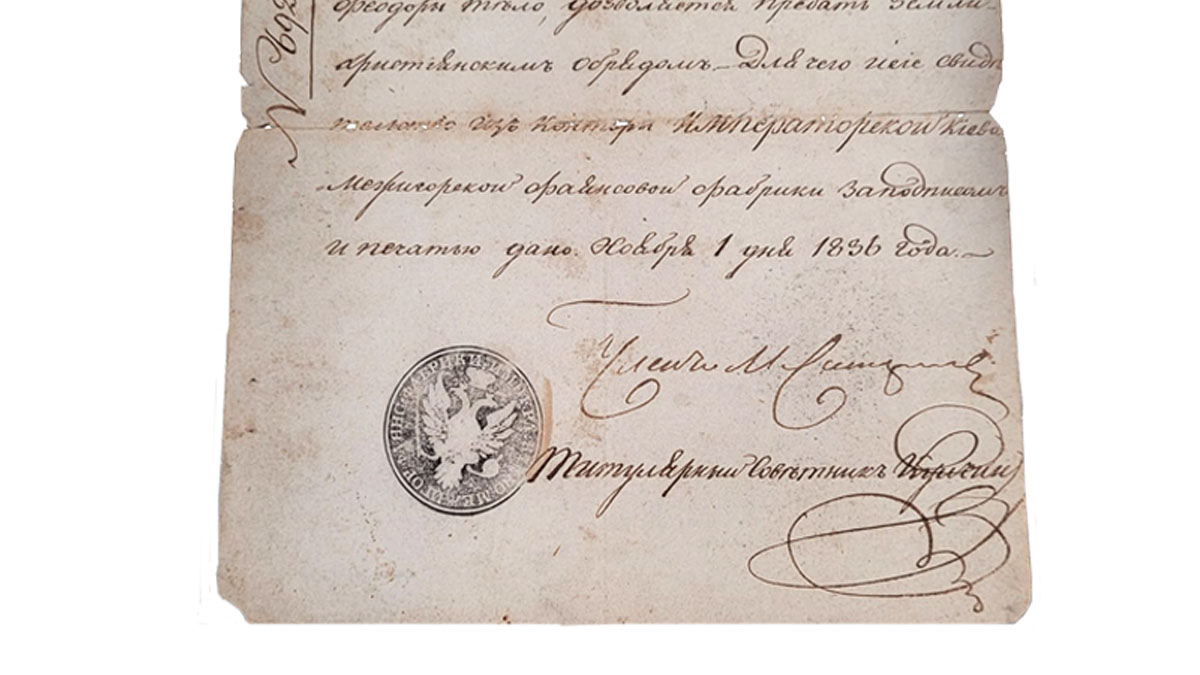 № 692
Ѳеодоры тѣло, дозволяется предать земли
христіянскимъ обрядомъ — Для чего и сіе свидѣ
тельство изъ Конторы Императорской Кіево
Межигорской фаянсовой фабрики за подписомъ
и печатью дано. Ноября 1 дня 1836 года. —
Членъ М.
Титулярный Совѣтникъ